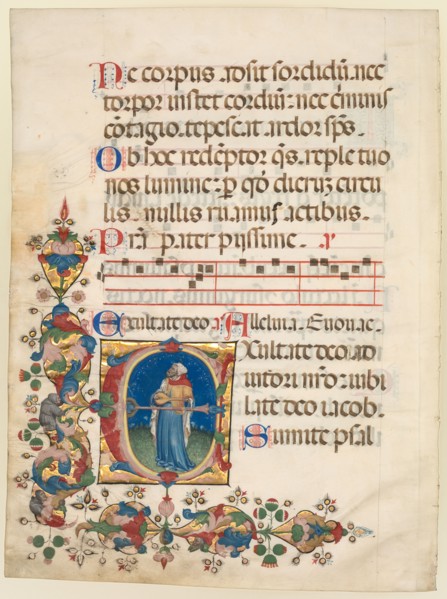 Ne corpus adsit sordidū. nec
torpor instet cordiū: nec cͥminis
cōtagio. tepescat ardor sp̄s.
Ob hoc redēptor q̄s. reple tuo
nos lumine: ꝑ qd̄ dierūꝫ circu
lis. nullis ruamus actibus.
Prā pater pijssime.
Exultate deo Alleluia. Euouae.
Exultate deo ad
iutori nr̄o: iubi
late deo iacob.
Sumite psal